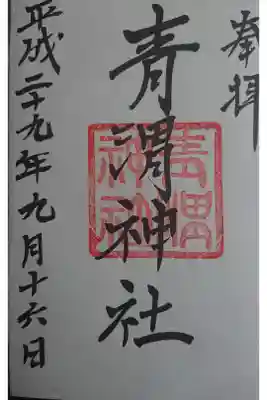 奉拝
青渭神社
青渭神社
平成二十九年九月十六日